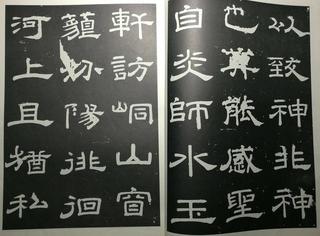 以致神非神
也其能感聖
自炎師水玉
軒訪峒山窅
籠陽徘徊
河上且猶私